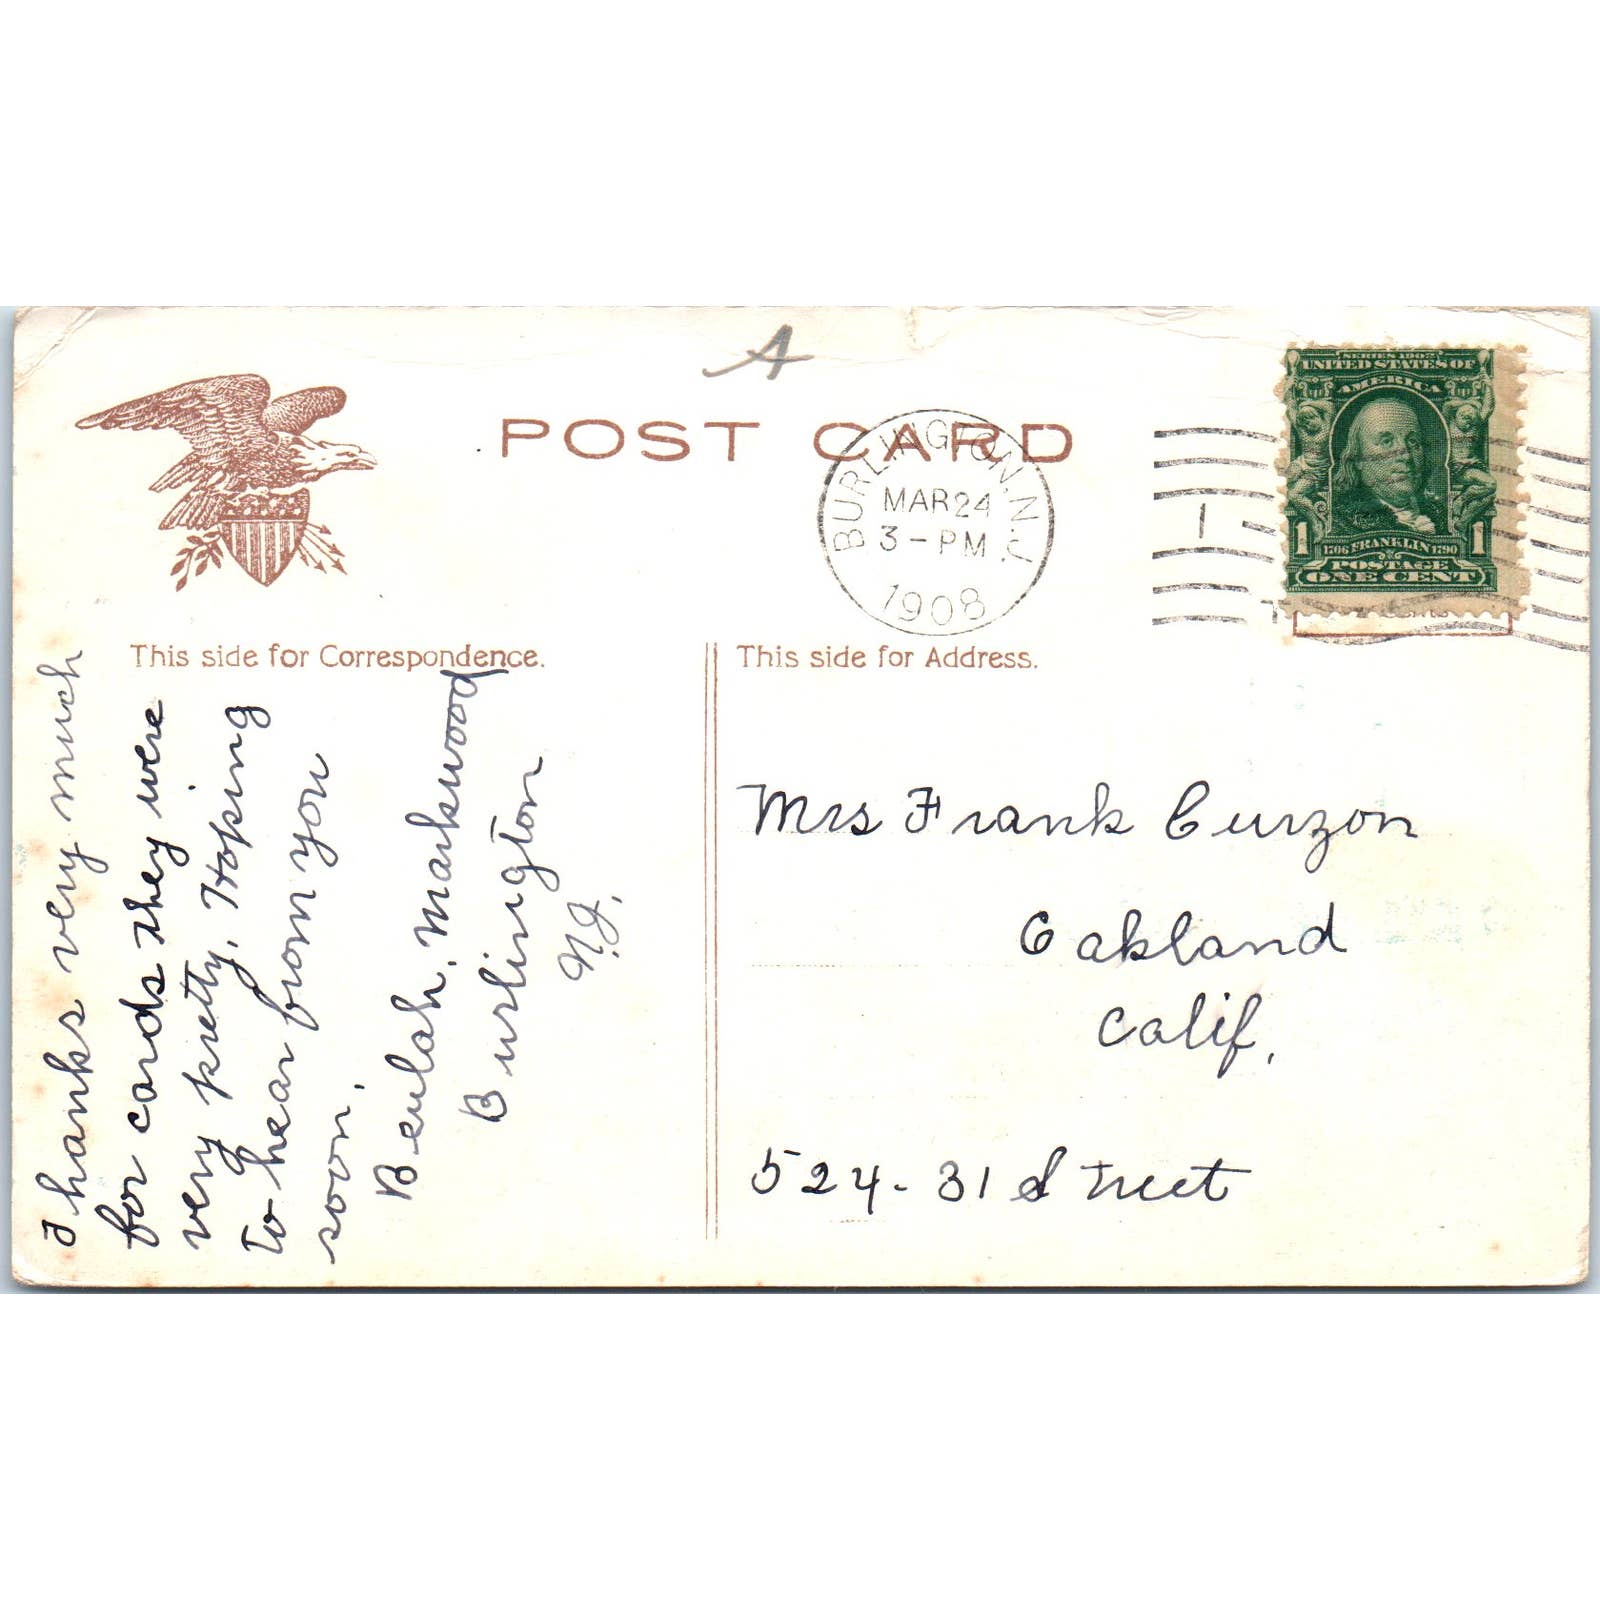 A
POST CARD
BURLINGTON, N.J.
MAR 24
3-PM
1908
1
SERIES 1902
UNITED STATES OF
AMERICA
1 1
1706 FRANKLIN 1790
POSTAGE
ONE CENT
This side for Correspondence.
Thanks very much
for cards they were
very pretty, Hoping
to hear from you
soon.
Beulah, Markwood
Burlington
N.J.
This side for Address.
Mrs Frank Curzon
Oakland
Calif,
524-31 Street